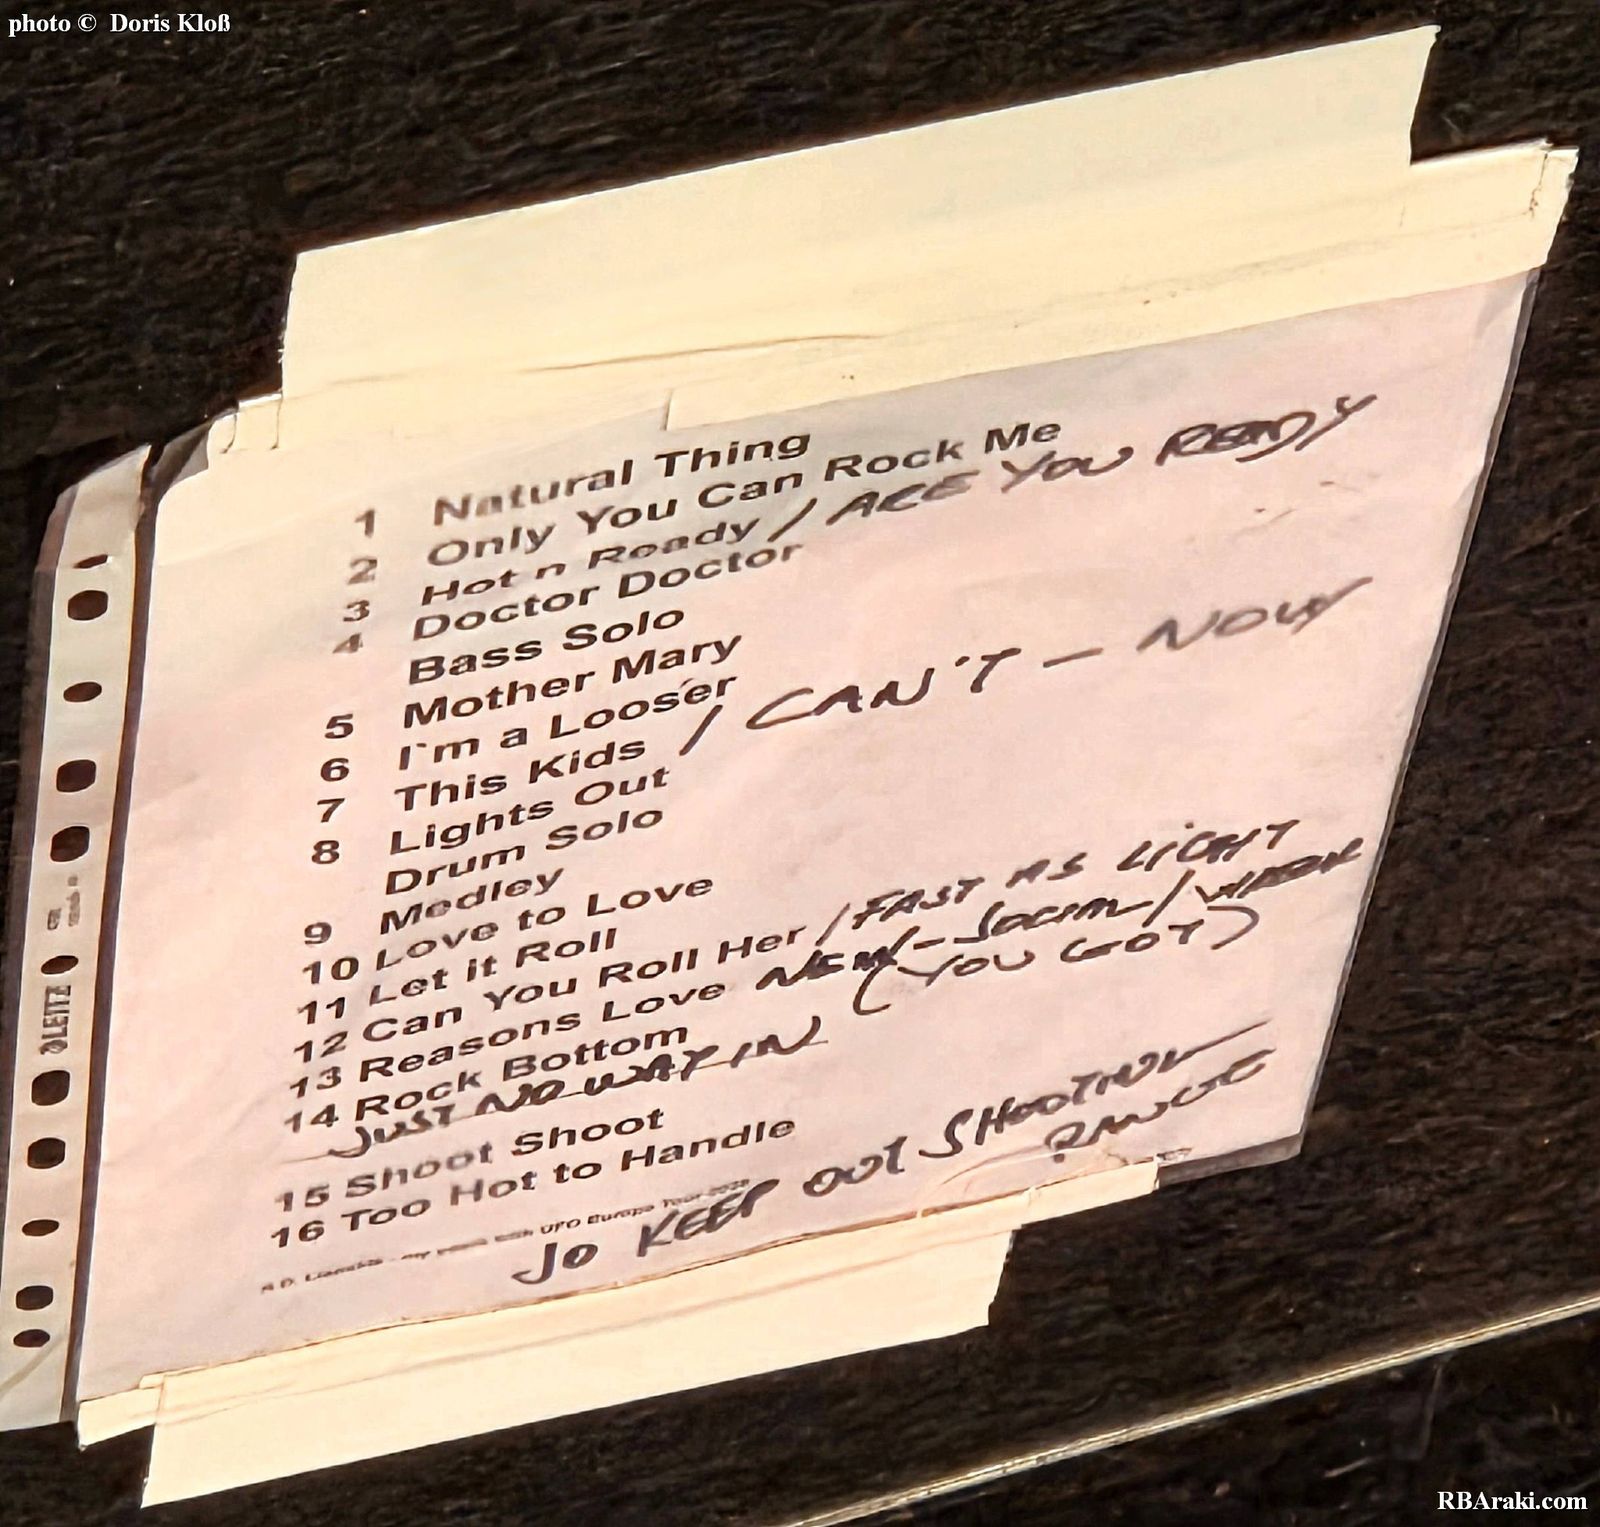 photo © Doris Kloß
1 Natural Thing
2 Only You Can Rock Me
3 Hot n Ready / ARE YOU READY
4 Doctor Doctor
Bass Solo
5 Mother Mary
6 I`m a Looser
7 This Kids / CAN'T - NOW
8 Lights Out
Drum Solo
9 Medley
10 Love to Love
11 Let it Roll
12 Can You Roll Her / FAST AS LIGHT
13 Reasons Love NEW - SOCIAL /
(YOU GOT)
14 Rock Bottom
JUST NO WAY IN
15 Shoot Shoot
16 Too Hot to Handle
my years with UFO Europe Tour
JO KEEP OUT SHOOTING
RANGE
LEITZ
RBAraki.com